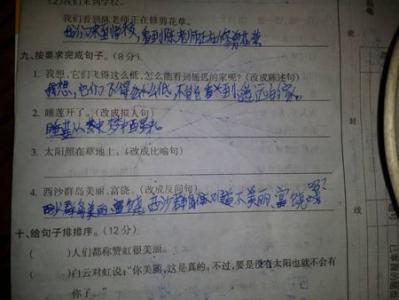 (2)我们来到学校。
我们看到陈老师正在修剪花草。
我们来到学校,看到陈老师正在修剪花草
九、按要求完成句子。(8分)
1. 我想,它们飞得这么低,怎么能看到遥远的家呢?(改成陈述句)
我想,它们飞得这么低,不能看到遥远的家。
2. 睡莲开了。(改成拟人句)
睡莲从梦中
3. 太阳照在草地上。(改成比喻句)
4. 西沙群岛美丽、富饶。(改成反问句)
西沙群岛美丽、富饶,西沙群岛难道不美丽、富饶吗?
十、给句子排排序。(12分)
( )人们都称赞虹很美丽。
( )白云对虹说:“你美丽,这是真的。不过,要是没有太阳也就不会有
你了。”
封
线